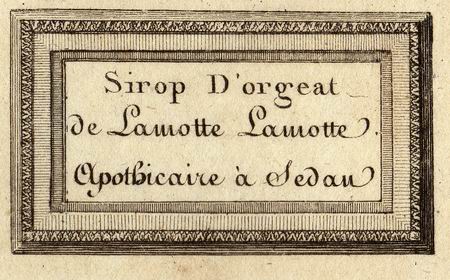 Sirop D'orgeat
de Lamotte Lamotte.
Apothicaire à Sedan